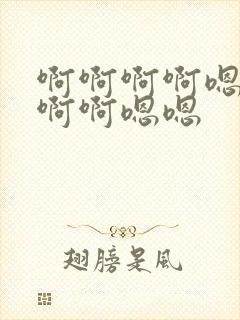 啊啊啊啊嗯
啊啊嗯嗯
翅膀是风